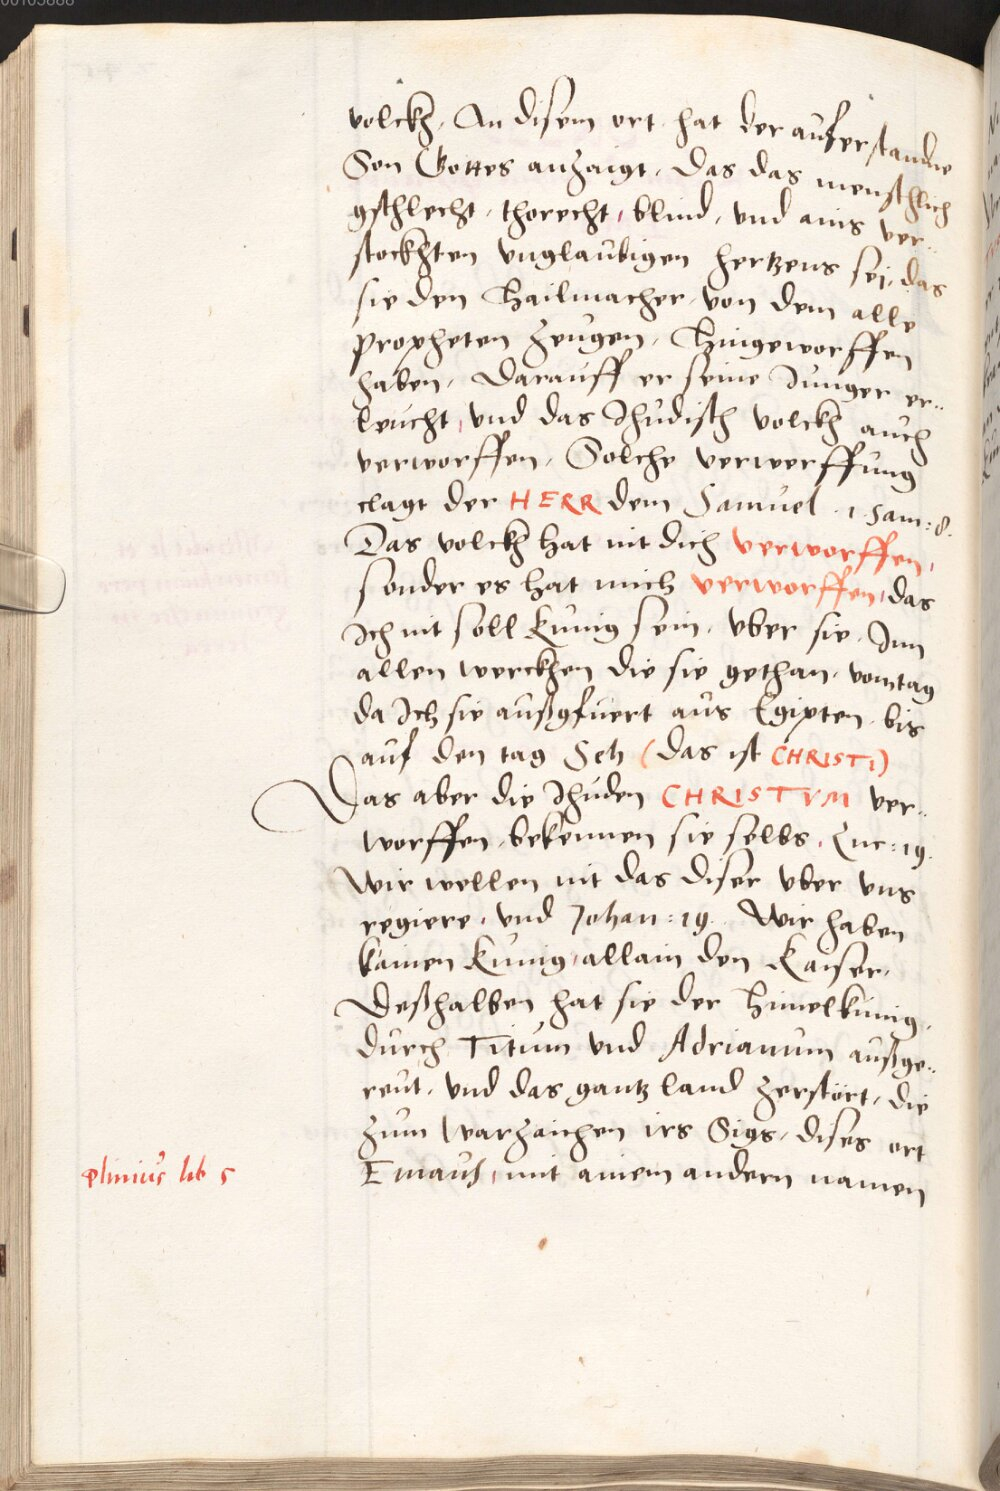 volckh, An disem ort hat der auferstandne
Son Gottes anzaigt, Das das menschlich
gschlecht, thorecht, blind, vnd ains ver-
stockhten vnglaubigen hertzens sei, das
sie den Hailmacher, von dem alle
propheten zeugen, Hingeworffen
haben, Darauff er seine Junger er-
leucht, vnd das Jhudisch volckh auch
verworffen, Solche verwerffung
clagt der HERR dem Samuel . 1 Sam: 8.
Das volckh hat nit dich verworffen,
sonder es hat mich verworffen, das
Ich nit soll Kunig sein, vber sie, Inn
allen werckhen die sie gethan, vom tag
da Ich sie außgfuert aus Egipten, bis
auf den tag (das ist CHRISTI)
Das aber die Jhuden CHRISTVM ver-
worffen, bekennen sie selbs, Luc: 19.
Wir wellen nit das diser vber vns
regiere, vnd Johan: 19. Wir haben
kainen Kunig, allain den Kaiser,
Deßhalben hat sie der Himelkunig,
durch Titum vnd Adrianum außge-
reut, vnd das gantz land zerstört, die
zum warzaichen irs Sigs, dises ort
Emaus, mit ainem andern namen
plinius lib 5